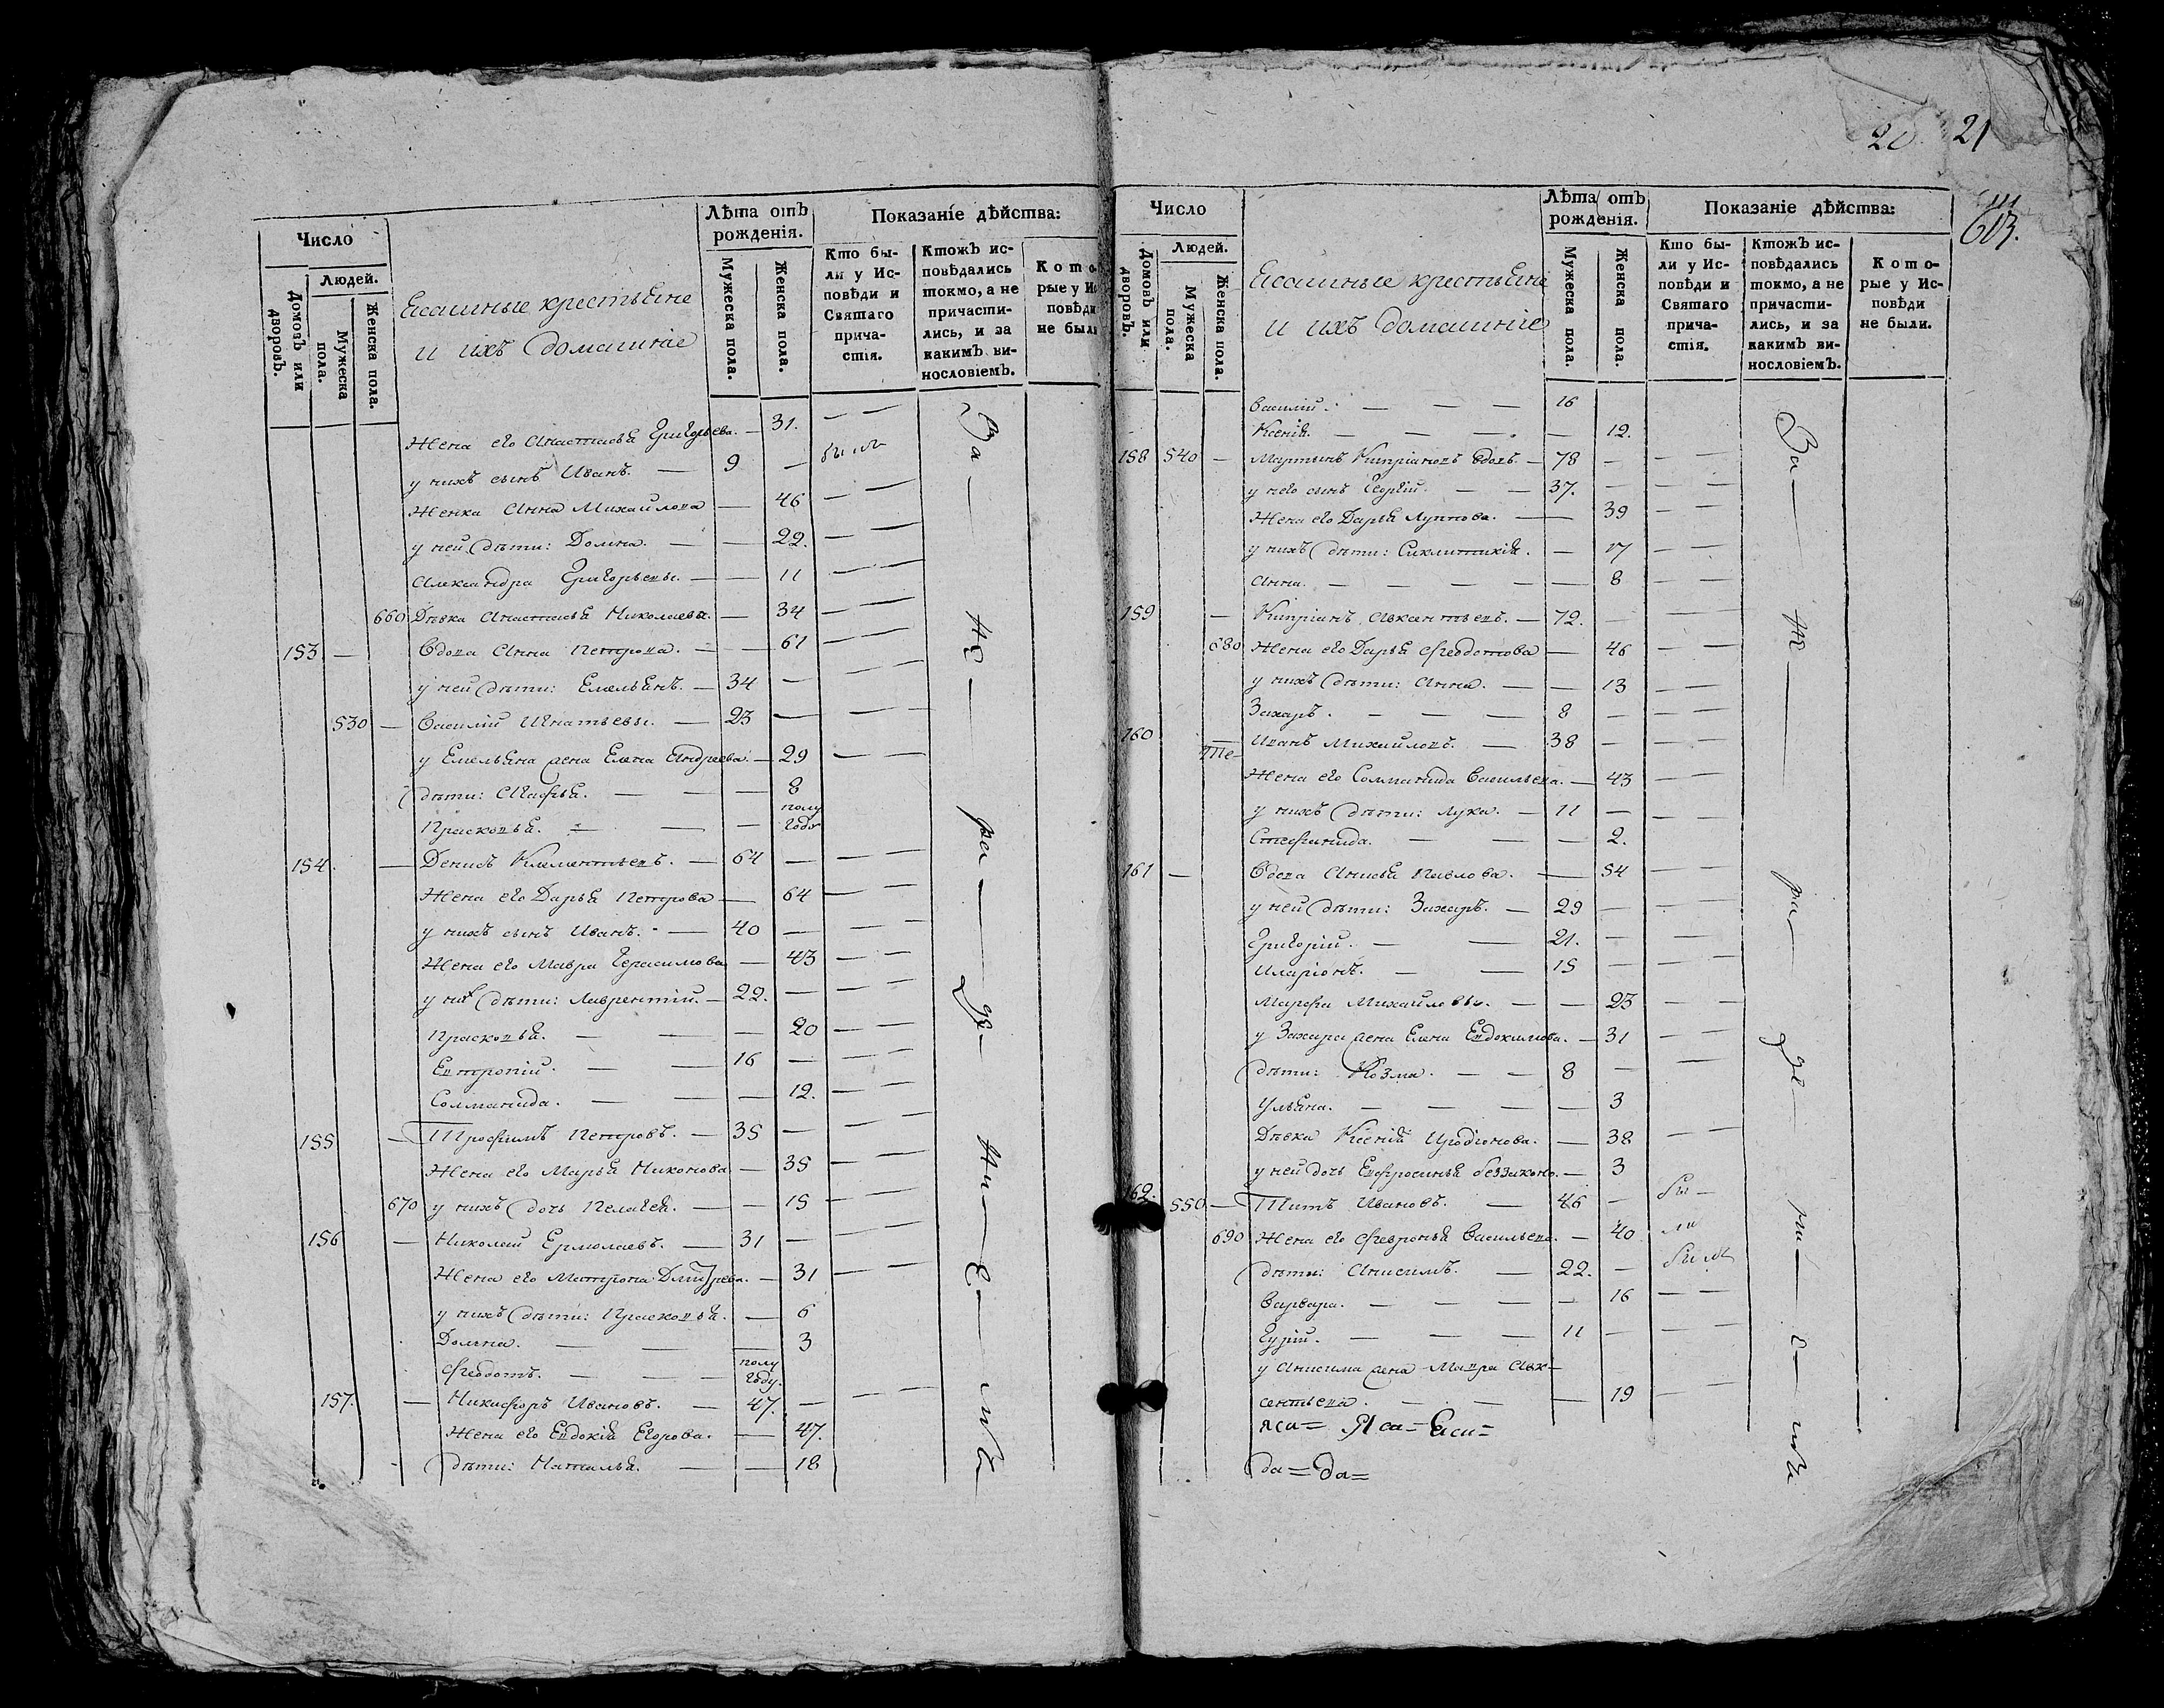 Число
Людей.
Домовъ или дворовъ.
Мужеска пола.
Женска пола.
Ясашные крестьяне
и ихъ домашніе
Лѣта отъ рожденія.
Мужеска пола.
Женска пола.
Показаніе дѣйства:
Кто бы-
ли у Ис-
повѣди и
Святаго
прича-
стія.
Ктожъ ис-
повѣдались
токмо, а не
причасти-
лись, и за
какимъ ви-
нословіемъ.
Кото
рые у Ис
повѣди
не были
Жена его Анастасья Григорьева. — 31.
у нихъ сынъ Иванъ. — 9 — были
Женка Анна Михайлова — 46
у ней дѣти: Домна. — — 22.
Александра Григорьевы. — — 11
660 Дѣвка Анастасья Николаева. — 34
153 — Вдова Анна Петрова. — — 61
у ней дѣти: Емельянъ. — 34 —
530 — Василій Игнатьевы. — 23 —
у Емельяна жена Елена Андреева. — 29
дѣти: Агафья. — — — 8
Прасковья. — — — полу году
154. — Денисъ Климентьевъ. — 64 —
Жена его Дарья Петрова — 64
у нихъ сынъ Иванъ. — 40 —
Жена его Мавра Герасимова — 43
у них дѣти: Лаврентій. — 22. —
Прасковья. — — — 20
Евтропій. — — 16 —
Соломанида. — — — 12.
155 — Трофимъ Петровъ. — 35 —
Жена его Марья Никонова — 35
670 у нихъ дочь Пелагея. — — 15
156 — Николай Ермолаевъ. — 31 —
Жена его Матрона Дмитрева. — 31
у нихъ дѣти: Прасковья. — 6
Домна. — — — 3
Ѳеодотъ. — — — полу году.
157. — Никифоръ Ивановъ. — 47. —
Жена его Евдокія Егорова. — 47.
дѣти: Наталья. — — 18
За — не — ра — де — ни — е — мъ
20. 21
603.
Число
Людей.
Домовъ или дворовъ.
Мужеска пола.
Женска пола.
Ясашные крестьяне
и ихъ домашніе
Лѣта отъ рожденія.
Мужеска пола.
Женска пола.
Показаніе дѣйства:
Кто бы-
ли у Ис-
повѣди и
Святаго
прича-
стія.
Ктожъ ис-
повѣдались
токмо, а не
причасти-
лись, и за
какимъ ви-
нословіемъ.
Кото-
рые у Ис-
повѣди
не были.
Василій. — — — 16
Ксенія. — — — — — 12.
158 540 — Мартынъ Кипріановъ вдовъ. — 78 —
у него сынъ Георгій. — — 37. —
Жена его Дарья Луппова. — — 39
у нихъ дѣти: Сиклитикія. — 17
Анна. — — — — — 8
159 — Кипріанъ Авксентьевъ. — 72. —
680 Жена его Дарья Ѳеодотова — 46
у нихъ дѣти: Анна. — — 13
Захаръ. — — — 8 —
160 — Иванъ Михайловъ. — 38 —
Те-
Жена его Соломанида Васильева. — 43
у нихъ дѣти: Лука. — 11 —
Стефанида. — — — 2.
161 — Вдова Анисья Павлова. — 54
у ней дѣти: Захаръ. — 29 —
Григорій. — — 21. —
Иларіонъ. — — 15 —
Марфа Михайловы. — — 23
у Захара жена Елена Евдокимова. — 31
дѣти: Козма. — — 8 —
Ульяна. — — — — 3
Дѣвка Ксенія Иродіонова. — 38
у ней дочь Евфросинья беззаконо. — 3
162. 550 — Титъ Ивановъ. — 46 — бы —
690 Жена его Ѳевронья Васильева. — 40 ли
дѣти: Анисимъ. — 22. — были
Варвара. — — — — 16
Гурій. — — — 11 —
у Анисима жена Мавра Авк-
сентьева. — — — — 19
яса= Яса= Еаса=
да= да=
За — не — ра — де — ни — е — мъ